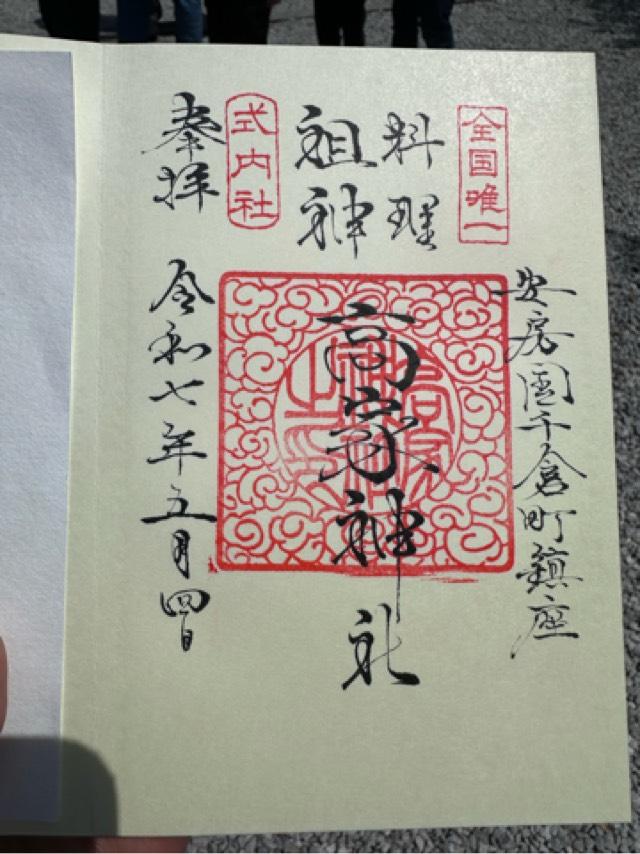 全国唯一
安房国千倉町鎮座
料理
祖神
高家神社
式内社
奉拝
令和七年五月四日